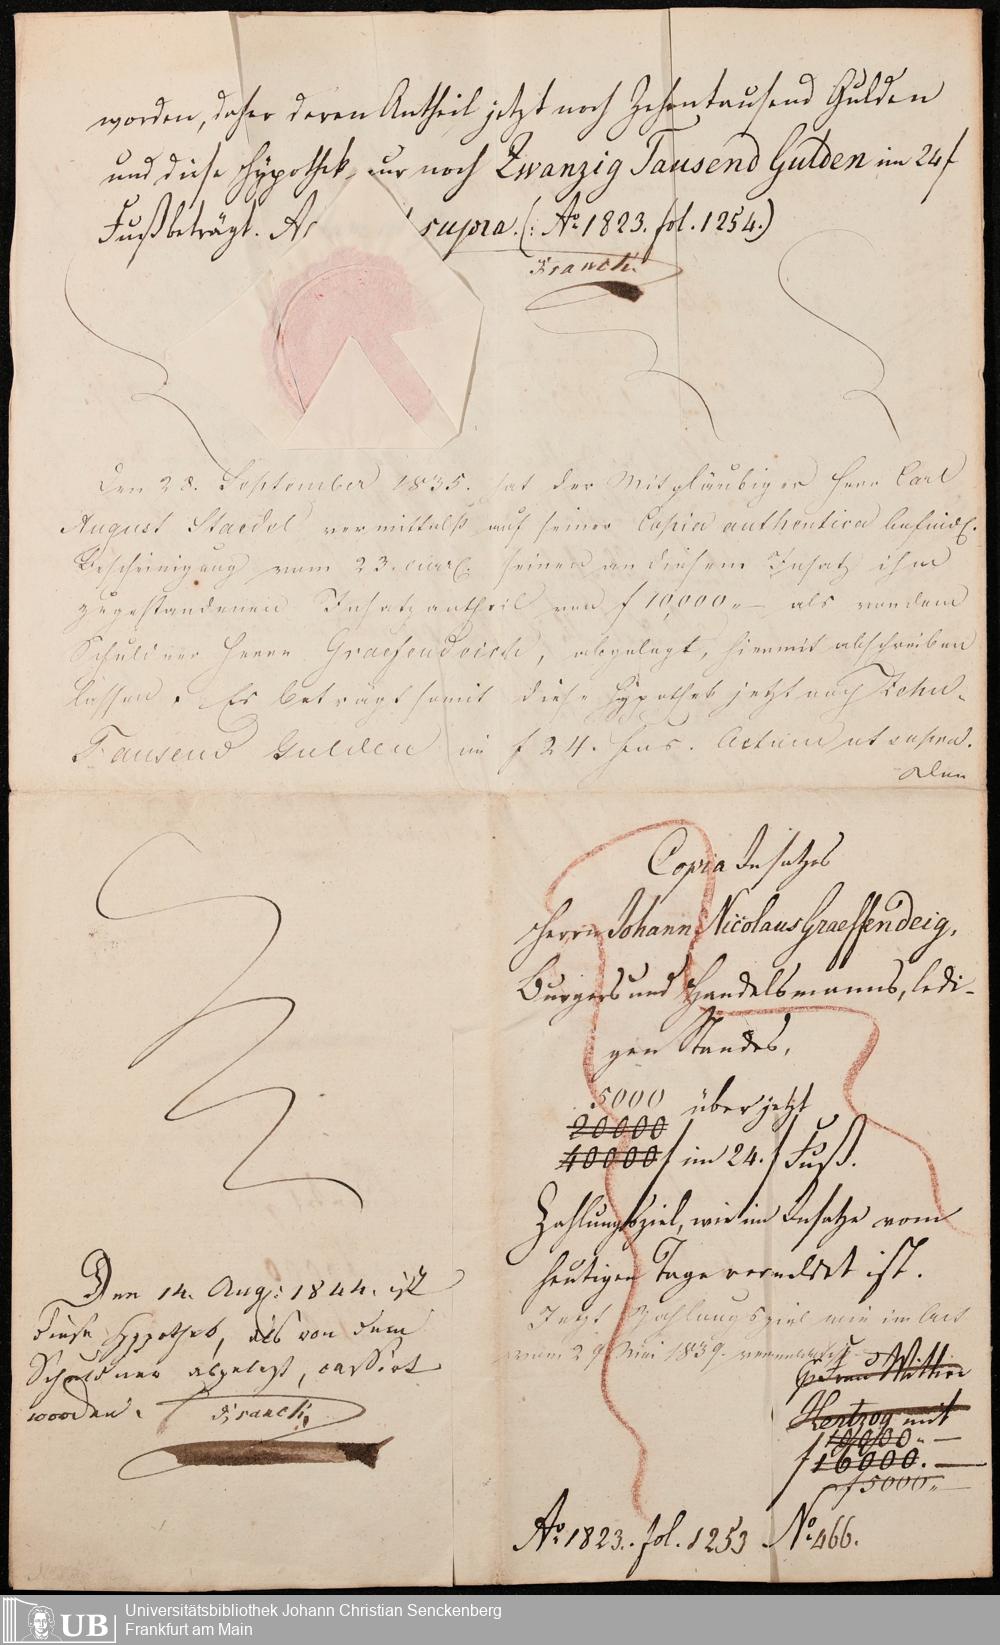 worden, daher deren Antheil jetzt noch Zehentausend Gulden
und diese Hypothek nur noch Zwanzig Tausend Gulden im 24 f
Fuß beträgt. supra. (: Ao 1823. fol. 1254.)
Franck.
Den 28. September 1835. hat der Mitgläubiger Herr Carl
August Staedel vermittelst auf seiner Copia authentica befindl.
Bescheinigung vom 23. curr. seinen an diesem Insatz ihm
zugestandenen Insatzantheil von f 10,000 „— als von dem
Schuldner Herrn Graefendeich, abgelegt, hiermit abschreiben
lassen. Es beträgt somit diese Hypothek jetzt noch Zehn-
Tausend Gulden im f 24. Fus. Actum ut supra.
Den
Copia Insatzes
Herrn Johann Nicolaus Graeffendeig,
Burgers und Handelsmanns, ledi-
gen Standes,
5000 über jetzt
20000
40000 f im 24. f Fuß.
Zahlungsziel, wie im Insatze vom
heutigen Tage vermeldet ist.
Jetzt Zahlungsziel wie im Act
vom 29. Mai 1839. vermeldet
Frau Wittwe
Hertzog mit
10000 „—
f 16000. —
f 5000 „—
Ao 1823. fol. 1253 No 466.
Den 14. Aug: 1844. ist
diese Hypothek, als von dem
Schuldner abgelegt, cassirt
worden.
Franck.
UB
Universitätsbibliothek Johann Christian Senckenberg
Frankfurt am Main